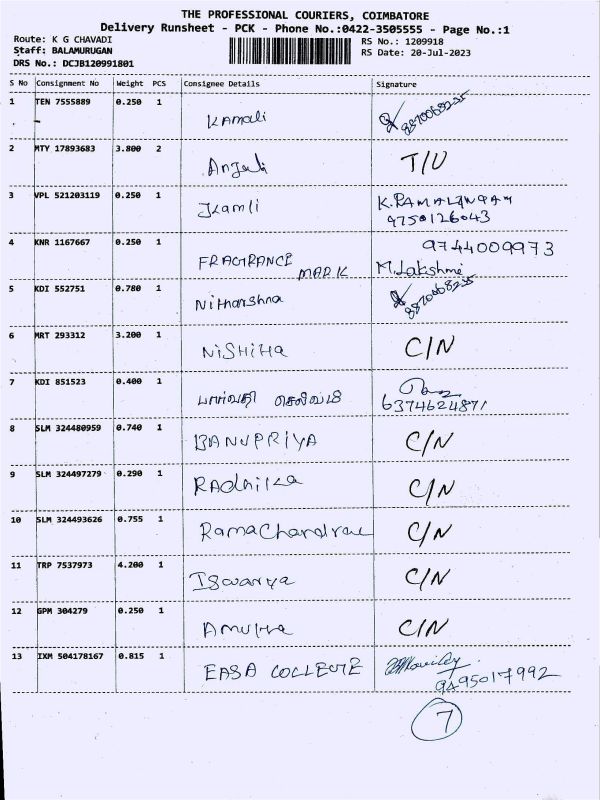 THE PROFESSIONAL COURIERS, COIMBATORE
Delivery Runsheet - PCK - Phone No.:0422-3505555 - Page No.:1
Route: K G CHAVADI RS No.: 1209918
Staff: BALAMURUGAN RS Date: 20-Jul-2023
DRS No.: DCJB120991801
S No Consignment No Weight PCS Consignee Details Signature
1 TEN 7555889 0.250 1 Kamali
2 MTY 17893683 3.800 2 Anjali T/U
3 VPL 521203119 0.250 1 Jkamli K.RAMALINGAM
9750126043
4 KNR 1167667 0.250 1 FRAGRANCE MARK 9744009973
M.Lakshmi
5 KDI 552751 0.780 1 Nitharshna
6 MRT 293312 3.200 1 NiSHiHa C/N
7 KDI 851523 0.400 1 பார்வதி செல்வமி
6374624871
8 SLM 324480959 0.740 1 BANUPRIYA C/N
9 SLM 324497279 0.290 1 RADhika C/N
10 SLM 324493626 0.755 1 RamaChandran C/N
11 TRP 7537973 4.200 1 Iswarya C/N
12 GPM 304279 0.250 1 AmuHa C/N
13 IXM 504178167 0.815 1 EASA COLLEGE
9495017992
7